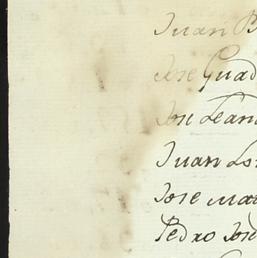 Juan
Jose Guad
Jose Lean
Juan Lo
Jose ma
Pedro José